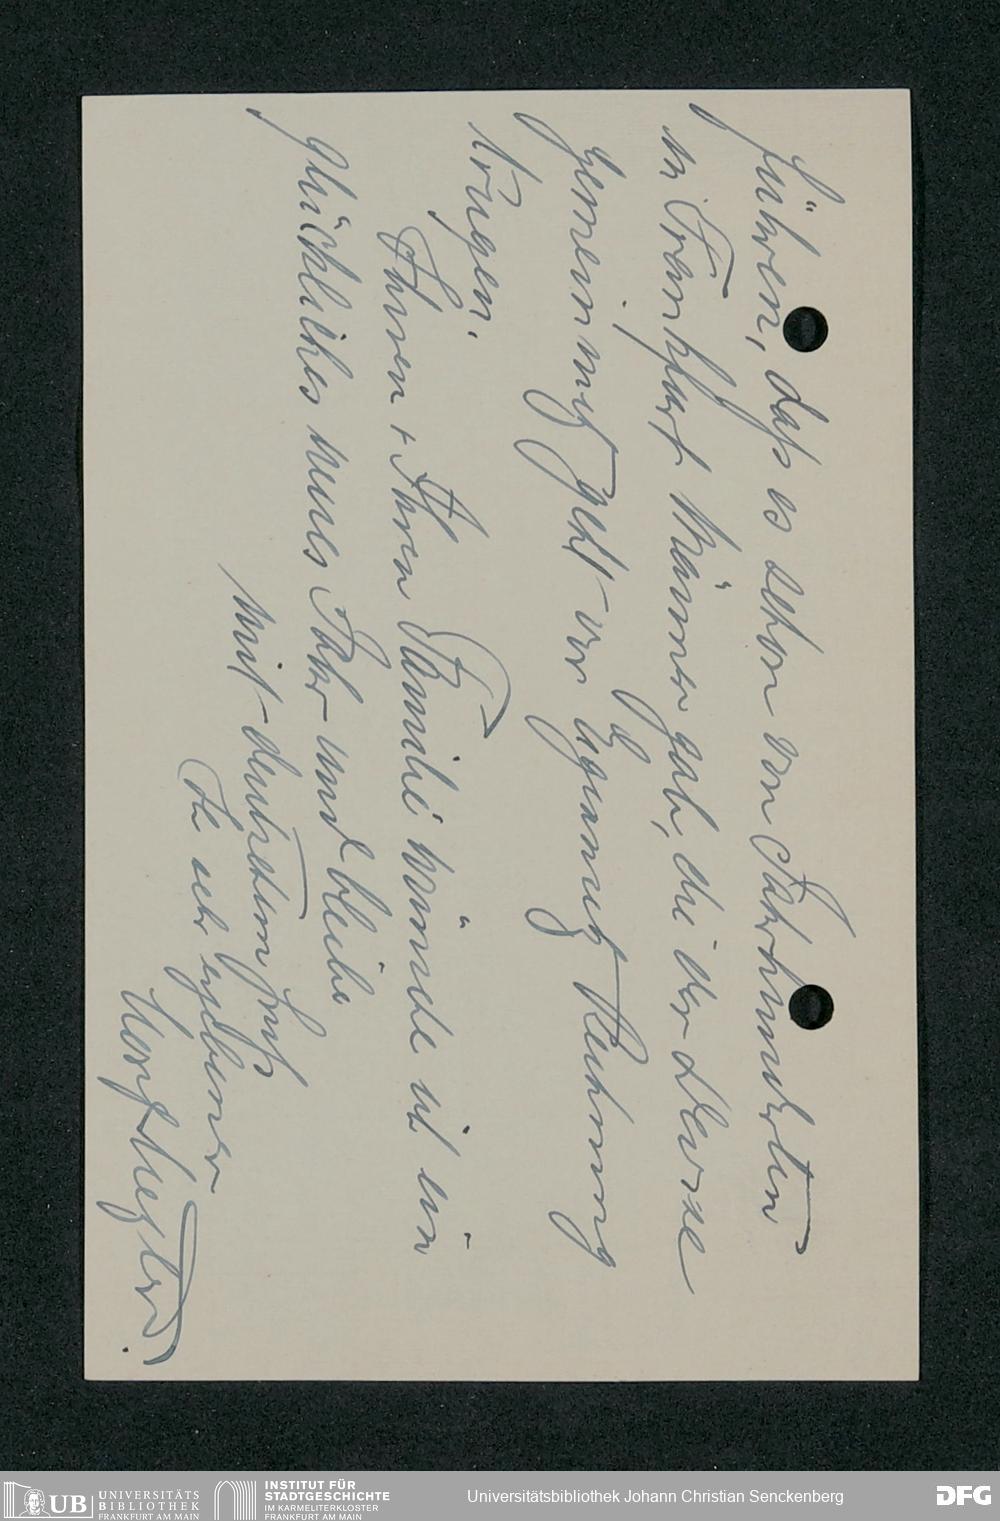 führen, daß es schon vor Jahrhunderten
in Frankfurt Männer gab, die der Devise
Gemeinnutz geht vor Eigennutz Rechnung
trugen.
Ihnen + Ihrer Familie wünsche ich ein
glückliches neues Jahr und bleibe
Mit deutschem Gruß
Ihr sehr ergebener
UB UNIVERSITÄTS
BIBLIOTHEK
FRANKFURT AM MAIN
INSTITUT FÜR
STADTGESCHICHTE
IM KARMELITERKLOSTER
FRANKFURT AM MAIN
Universitätsbibliothek Johann Christian Senckenberg
DFG